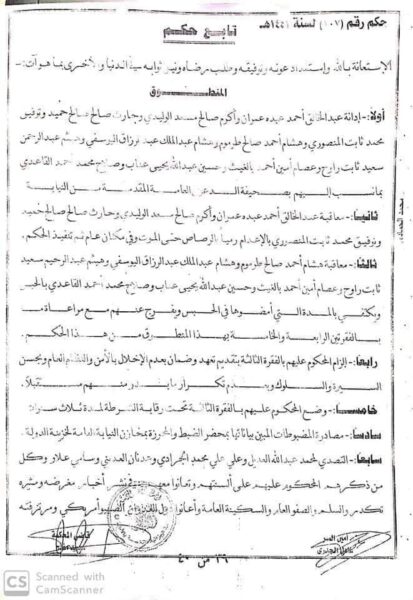 حكم رقم (١٠٧) لسنة ١٤٤١هـ
تابع حكم
الإستعانة بالله وإستمداد عونه وتوفيقه وطلب مرضاه ونيل ثوابه في الدنيا والأخرى بما هو آت:-
المنطوق
أولاً:- إدانة عبدالخالق أحمد عبده عمران وأكرم صالح مسعد الوليدي وحارث صالح صالح حميد وتوفيق
محمد ثابت المنصوري وهشام أحمد صالح طرموم وهشام عبدالملك عبدالرزاق اليوسفي وهيثم عبدالرحمن
سعيد ثابت راوح وعصام أمين أحمد بالغيث وحسين عبدالله يحيى عناب وصالح محمد أحمد القاعدي
بما نسب إليهم بصحيفة الدعوى العامة المقدمة من النيابة
ثانياً:- معاقبة عبدالخالق أحمد عبده عمران وأكرم صالح مسعد الوليدي وحارث صالح صالح حميد
وتوفيق محمد ثابت المنصوري بالإعدام رمياً بالرصاص حتى الموت وفي مكان عام تم تنفيذ الحكم.
ثالثاً:- معاقبة هشام أحمد صالح طرموم وهشام عبدالملك عبدالرزاق اليوسفي وهيثم عبدالرحيم سعيد
ثابت راوح وعصام أمين أحمد بالغيث وحسين عبدالله يحيى عناب وصالح محمد أحمد القاعدي بالحبس
ويكتفى بالمدة التي أمضوها في الحبس ويفرج عنهم مع مراعاة
بالفقرتين الرابعة والخامسة بهذا المنطوق من هذا الحكم.
رابعاً:- إلزام المحكوم عليهم بالفقرة الثالثة بتقديم تعهد وضمان بعدم الإخلال بالأمن والنظام العام وبحسن
السيرة والسلوك وبعدم تكرار ما بدر منهم مستقبلاً.
خامساً:- وضع المحكوم عليهم بالفقرة الثالثة تحت رقابة الشرطة لمدة ثلاث سنوات
سادساً:- مصادرة المضبوطات المبين بياناتها بمحضر الضبط والمحرزة بمخازن النيابة العامة لخزينة الدولة.
سابعاً:- التصدي لمحمد عبدالله العديل وعلي علي محمد الجرادي وعدنان العديني وسامي علاو وكل
من ذكرهم المحكوم عليهم على ألسنتهم وتعاونوا معهم في نشر أخبار مغرضة ومثيرة
تكدر والسلم والصفو العام والسكينة العامة وأعانوا الصهيو أمريكي ومرتزقته
أمين السر
قاضي المحكمة
٣٦ من ٤٠
CS
Scanned with
CamScanner